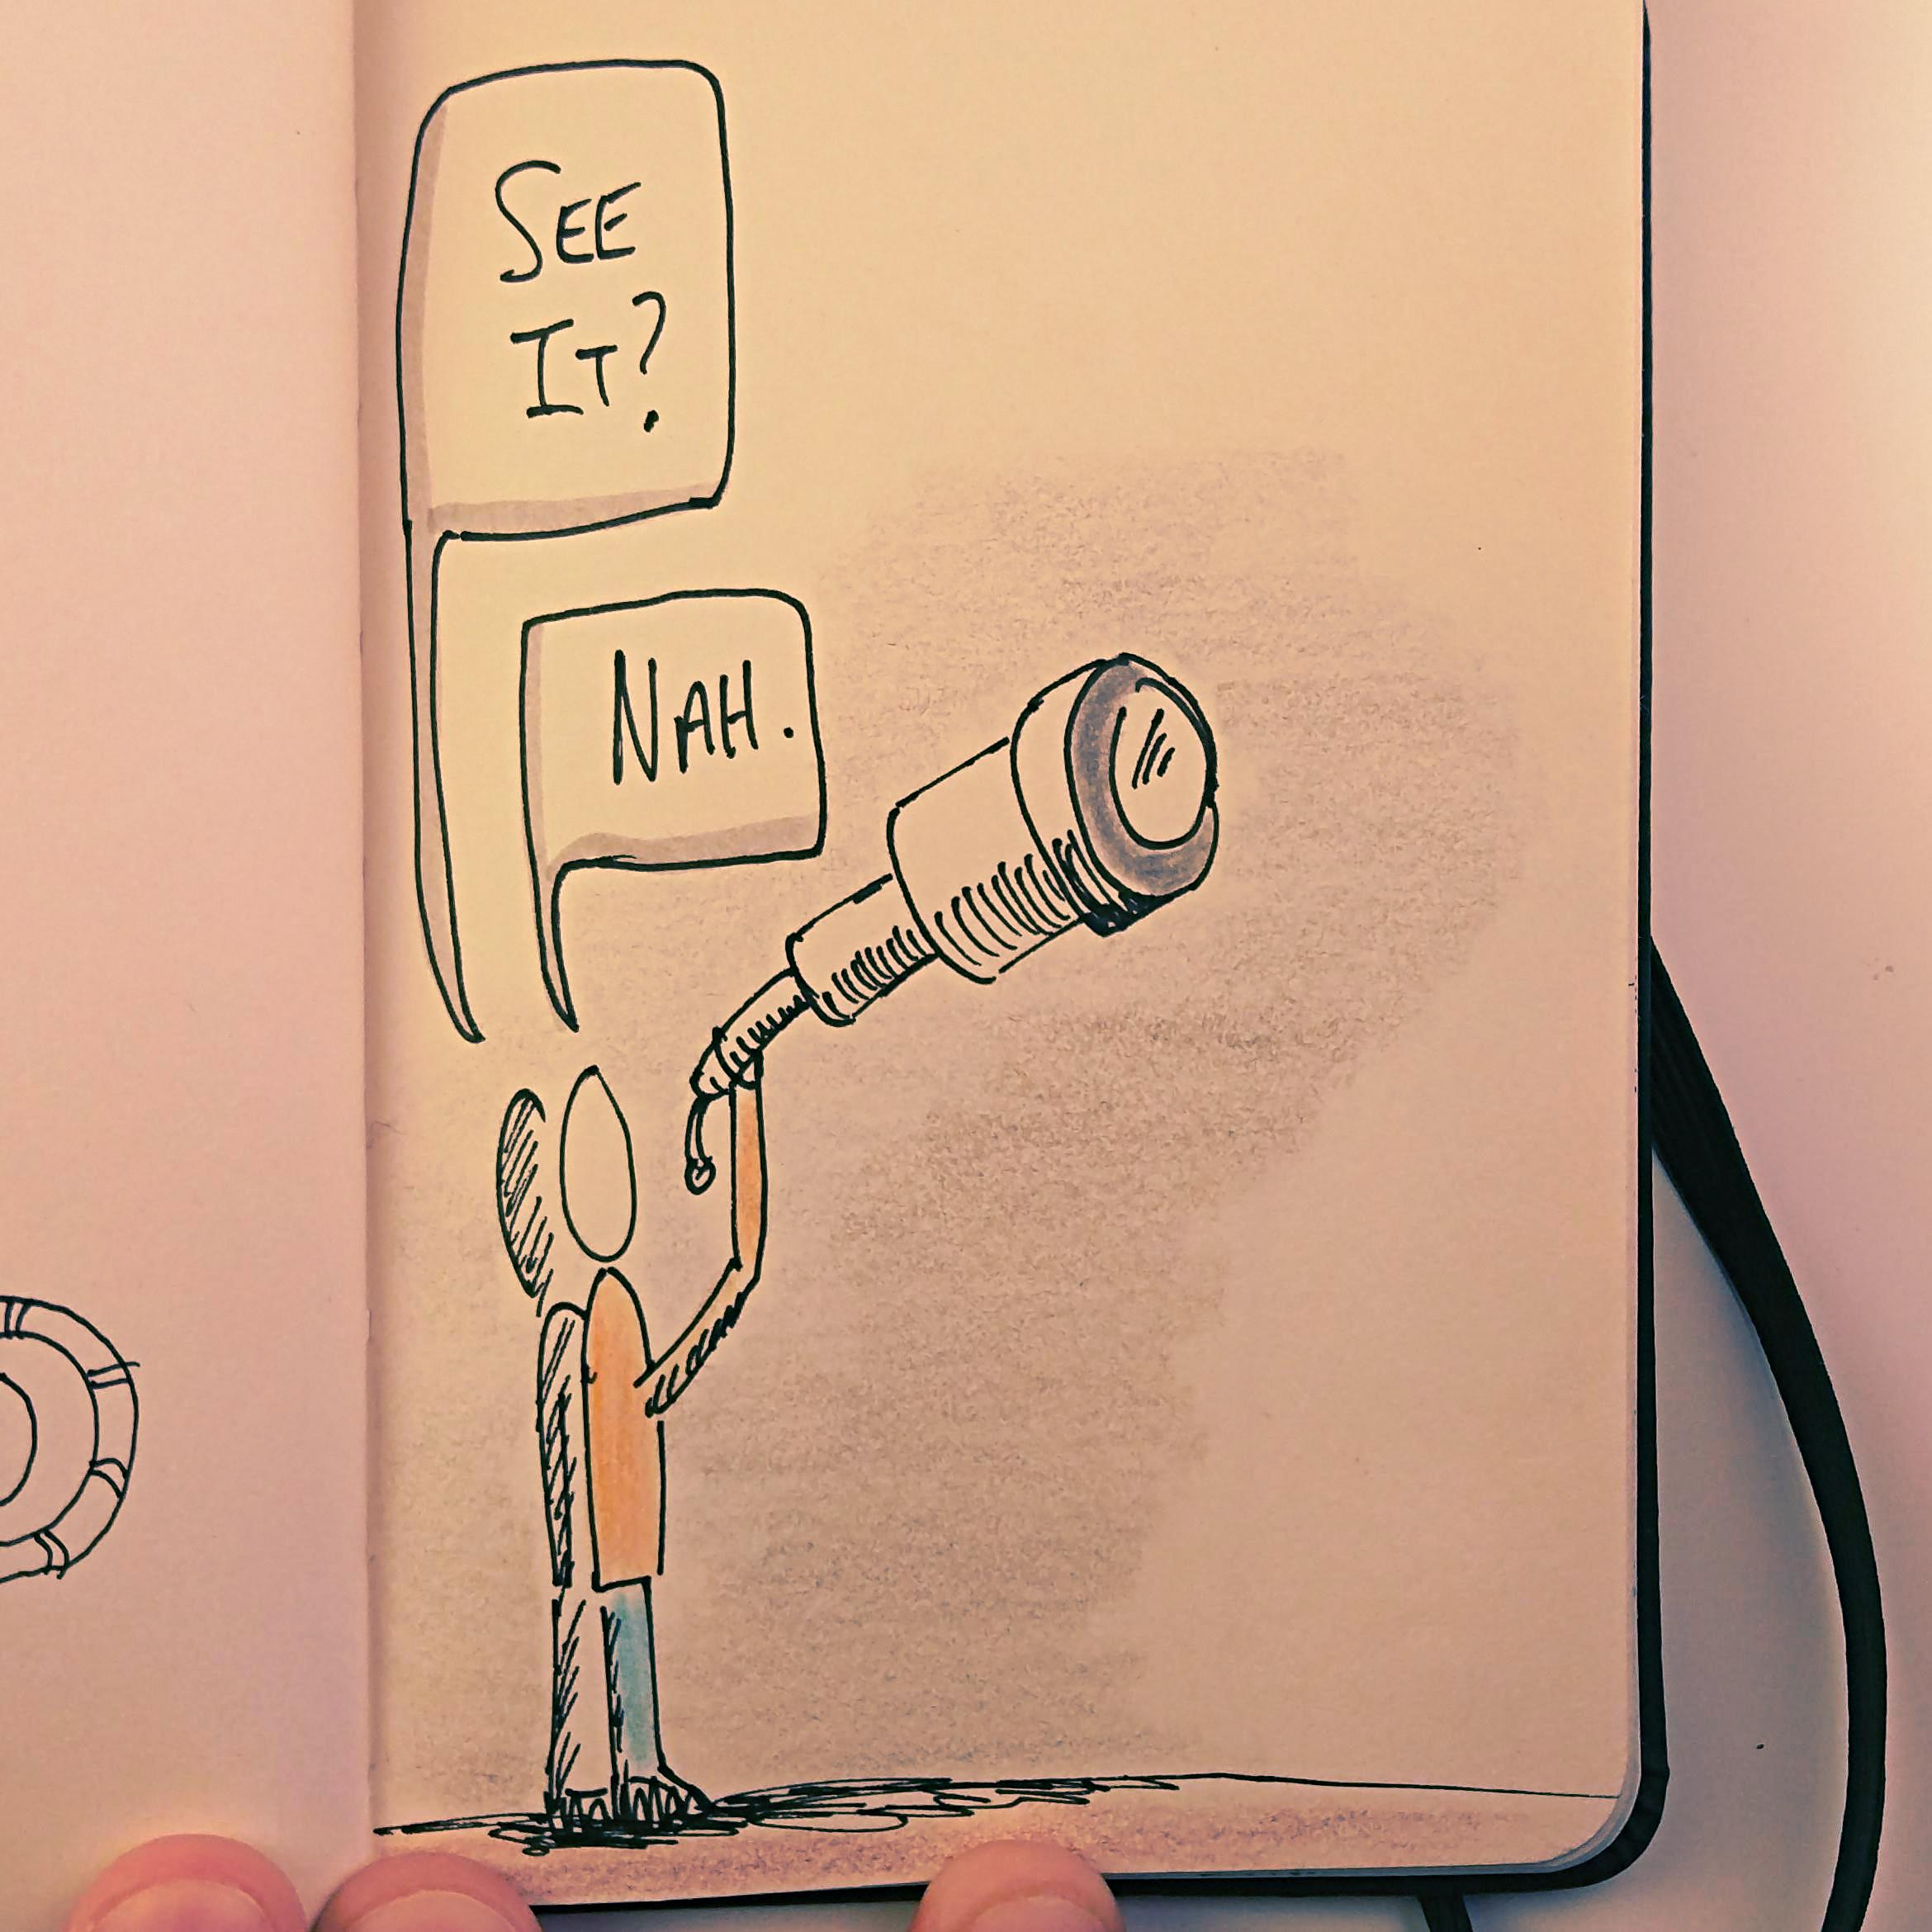 SEE
IT?
NAH.